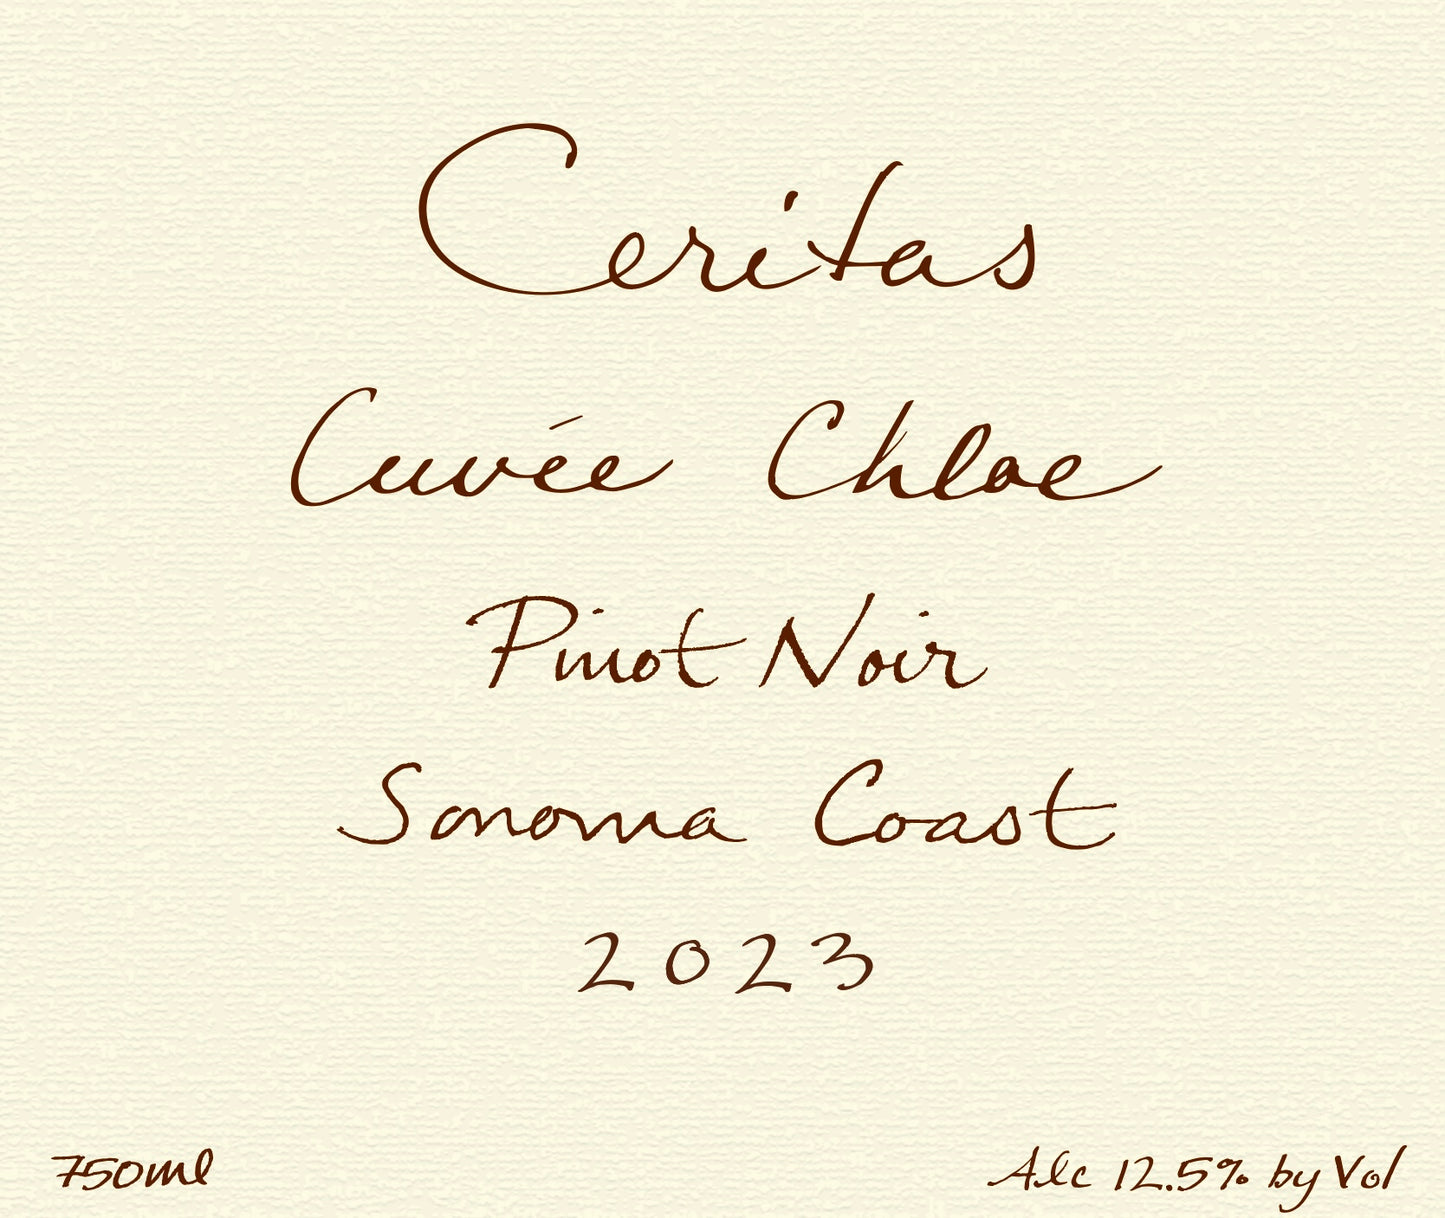 Ceritas
Cuvée Chloe
Pinot Noir
Sonoma Coast
2023
750ml
Alc 12.5% by Vol